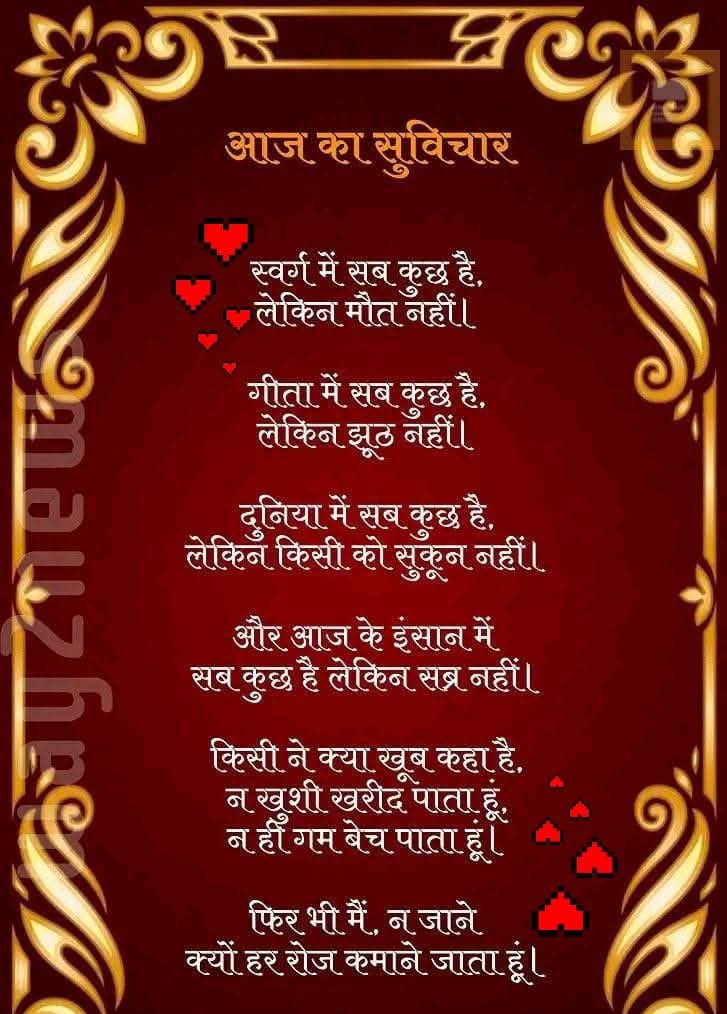 आज का सुविचार
स्वर्ग में सब कुछ है,
लेकिन मौत नहीं।
गीता में सब कुछ है,
लेकिन झूठ नहीं।
दुनिया में सब कुछ है,
लेकिन किसी को सुकून नहीं।
और आज के इंसान में
सब कुछ है लेकिन सब्र नहीं।
किसी ने क्या खूब कहा है,
न खुशी खरीद पाता हूं,
न ही गम बेच पाता हूं।
फिर भी मैं, न जाने
क्यों हर रोज कमाने जाता हूं।
way2news